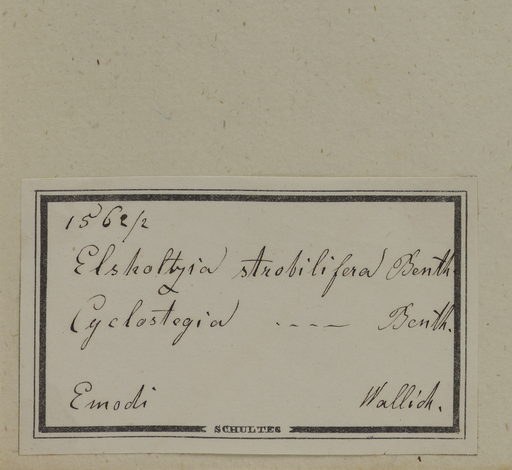 1562/2
Elsholtzia strobilifera Benth.
Cyclostegia ---- Benth.
Emodi Wallich.
SCHULTES